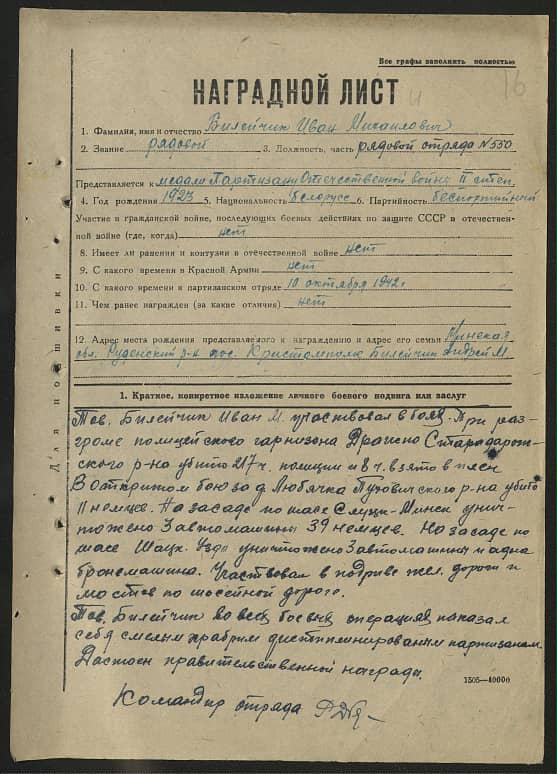 Все графы заполнить полностью
16
НАГРАДНОЙ ЛИСТ
1. Фамилия, имя и отчество Билейчик Иван Михайлович
2. Звание рядовой 3. Должность, часть рядовой отряда №550
Представляется к медали Партизану Отечественной войны II степ.
4. Год рождения 1923 5. Национальность белорус 6. Партийность беспартийный
Участие в гражданской войне, последующих боевых действиях по защите СССР в отечествен-
ной войне (где, когда) нет
8. Имеет ли ранения и контузии в отечественной войне нет
9. С какого времени в Красной Армии нет
10. С какого времени в партизанском отряде 10 октября 1942 г.
11. Чем ранее награжден (за какие отличия) нет
12. Адрес места рождения представляемого к награждению и адрес его семьи Минская
обл. Руденский р-н пос. Билейчик Андрей М.
Для подшивки
1. Краткое, конкретное изложение личного боевого подвига или заслуг
Тов. Билейчик Иван М. участвовал в боях. При раз-
громе полицейского гарнизона Дражно Стародорож-
ского р-на убито 217 ч. полиции и 8 ч. взято в плен
В открытом бою за д. Любячка Пуховичского р-на убито
11 немцев. На засаде по шасе Слуцк-Минск унич-
тожено 3 автомашины 39 немцев. На засаде по
шасе Шацк-Узда уничтожено 3 автомашины и адна
бронемашина. Участвовал в подриве жел. дороги и
мостов по шосейной дороге.
Тов. Билейчик во всех боевых операциях показал
себя смелым храбрим дистиплинированим партизанам
Достоен правительственной награди.
1505—40000
Командир отряда